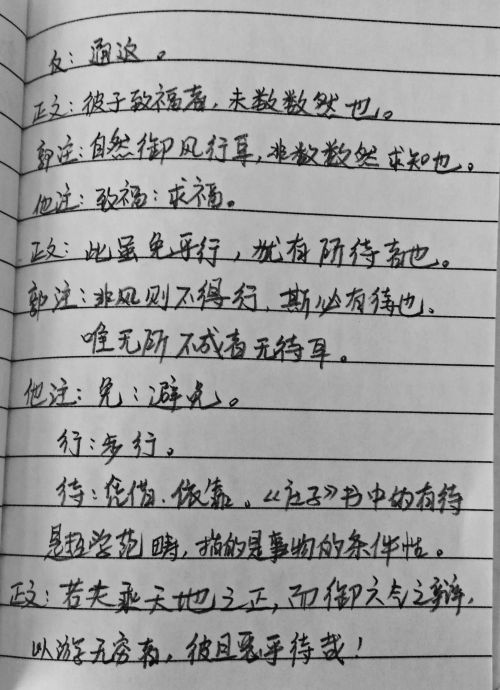 反：通返。
正文：彼于致福者，未数数然也。
郭注：自然御风行耳，非数数然求知也。
他注：致福：求福。
正文：此虽免乎行，犹有所待者也。
郭注：非风则不得行，斯必有待也、
唯无所不成者无待耳。
他注：免：避免。
行：步行。
待：凭借、依靠。《庄子》书中的有待
是哲学范畴，指的是事物的条件性。
正文：若夫乘天地之正，而御六气之辩，
以游无穷者，彼且恶乎待哉！